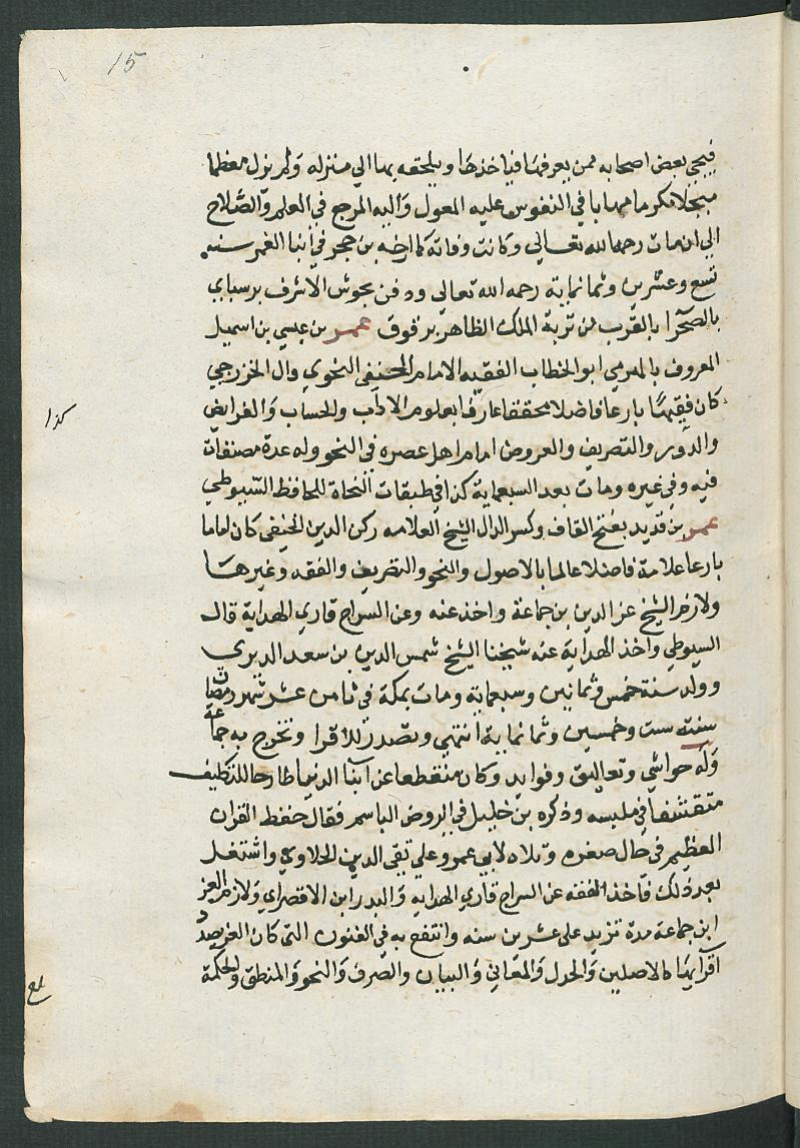 15
فيجي بعض اصحابه ممن يعرفها فياخذها ويلحقه بها الي منزله ولم يزل معظما
مبجلا مكرما مهابا في النفوس عليه المعول واليه المرجع في العلم والصلاح
الي ان مات رحمه الله تعالي وكانت وفاته كما ارخه بن حجر في انبا الغمر سنه
تسع وعشرين وثمانماية رحمه الله تعالي ودفن بحوش الاشرف برسباي
بالصحرا بالقرب من تربة الملك الظاهر برقوق عمر بن عيسي بن اسمعيل
المعروف بالهرمي ابو الخطاب الفقيه الامام الحنفي النحوي وال الخزرجي
كان فقيها بارعا فاضلا محققا عارفا بعلوم الاداب والحساب والفرايض
والدور والتصريف والعروض امام اهل عصره في النحو وله عدة مصنفات
فيه وفي غيره ومات بعد السبعماية كذا في طبقات النحاة للحافظ السيوطي
عمر بن قديد بفتح القاف وكسر الدال الشيخ العلامه ركن الدين الحنفي كان اماما
بارعا علامة فاضلا عالما بالاصول والنحو والتصريف والفقه وغيرها
ولازم الشيخ عز الدين بن جماعة واخذ عنه وعن السراج قاري الهداية قال
السيوطي واخذ الهداية عنه شيخنا الشيخ شمس الدين بن سعد الديري
وولد سنة خمس وثمانين وسبعماية ومات بمكة في ثامن عشر شهر رمضان
سنة ست وخمسين وثمانماية انتهي وتصدر للاقرا وتخرج به جماعة
وله حواشي وتعاليق وفوايد وكان منقطعا عن ابنا الدنيا طارحا للتكليف
متقشفا في ملبسه وذكره بن خليل في الروض الباسم فقال حفظ القران
العظيم في حال صغره وتلاه لابي عمرو علي تقي الدين الحلاوي واشتغل
بعد ذلك فاخذ الفقه عن السراج قاري الهدايه والبدر ابن الاقصراي ولازم العز
ابن جماعة مدة تزيد علي عشرين سنه وانتفع به في الفنون التي كان العز بصدد
اقرايها كالاصلين والجدل والمعاني والبيان والصرف والنحو والمنطق والحكمة
كذا